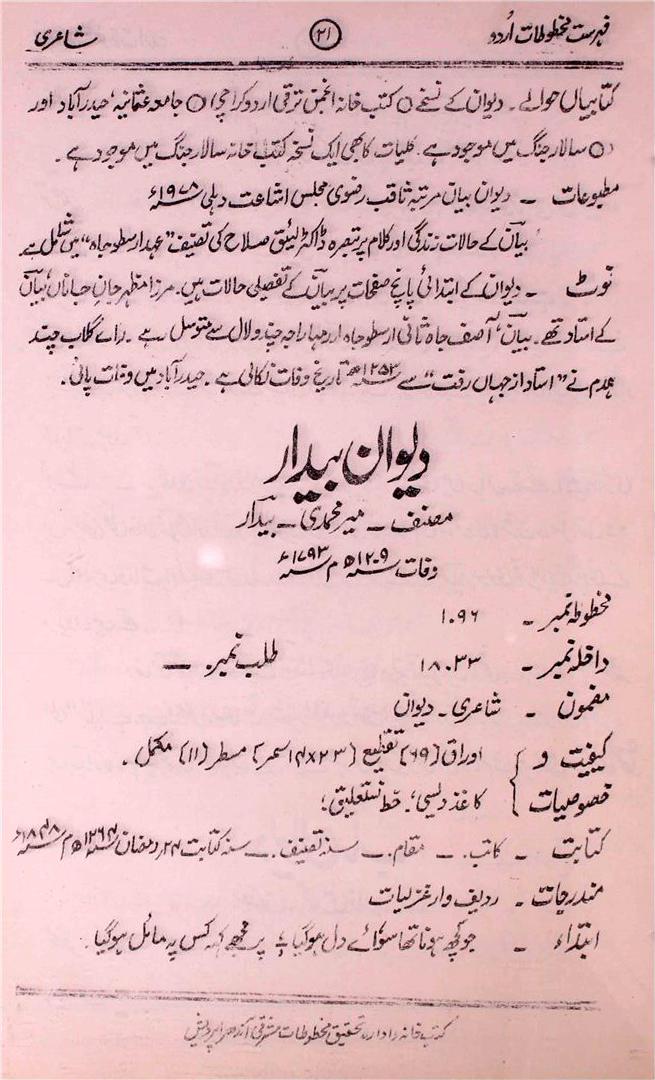 فہرست مخطوطات اُردو ۲۱ شاعری
کتابیاتی حوالے ۔ دیوان کے نسخے ○ کتب خانہ انجمن ترقی اردو (کراچی) ○ جامعہ عثمانیہ، حیدرآباد اور
○ سالار جنگ میں موجود ہے۔ کلیات کا بھی ایک نسخہ کتب خانہ سالار جنگ میں موجود ہے ۔
مطبوعات ۔ دیوان بیان مرتبہ ثاقب رضوی مجلس اشاعت دہلی ۱۹۷۸ء
بیاؔن کے حالات زندگی اور کلام پر تبصرہ ڈاکٹر لئیق صلاح کی تصنیف "عہد ارسطو جاہ" میں شامل ہے
نوٹ ۔ دیوان کے ابتدائی پانچ صفحات پر بیاؔن کے تفصیلی حالات ہیں۔ مرزا مظہر جانِ جاناں، بیاؔن
کے استاد تھے۔ بیاؔن، آصف جاہ ثانی ارسطو جاہ اور مہاراجہ چندولال سے متوسل رہے ۔ رائے گلاب چند
ہمدم نے "استاد از جہاں رفت" سے ۱۲۵۳ھ تاریخ وفات نکالی ہے۔ حیدرآباد میں وفات پائی۔
دیوان بیدار
مصنف ۔ میر محمدی ۔ بیداؔر
وفات ۱۲۰۹ھ م ۱۷۹۳ء
مخطوطہ نمبر ۔ ۱۰۹۶
داخلہ نمبر ۔ ۱۸۰۳۳ طلب نمبر ۔ —
مضمون ۔ شاعری ۔ دیوان
کیفیت و اوراق (۶۹) تقطیع (۲۳×۱۴ سمر) مسطر (۱۱) مکمل ۔
خصوصیات کاغذ دیسی؛ خط نستعلیق؛
کتابت ۔ کاتب ۔ — مقام ۔ — سنہ تصنیف ۔ — سنہ کتابت ۲۴؍رمضان ۱۲۶۴ھ م ۱۸۴۸ء
مندرجات ۔ ردیف وار غزلیات
ابتداء ۔ جو کچھ ہونا تھا سو اے دل ہو گیا ؛ پر مجھے کہہ کس پہ مائل ہو گیا ۔
کتب خانہ و ادارہ تحقیق مخطوطات مشرقی آندھرا پردیش